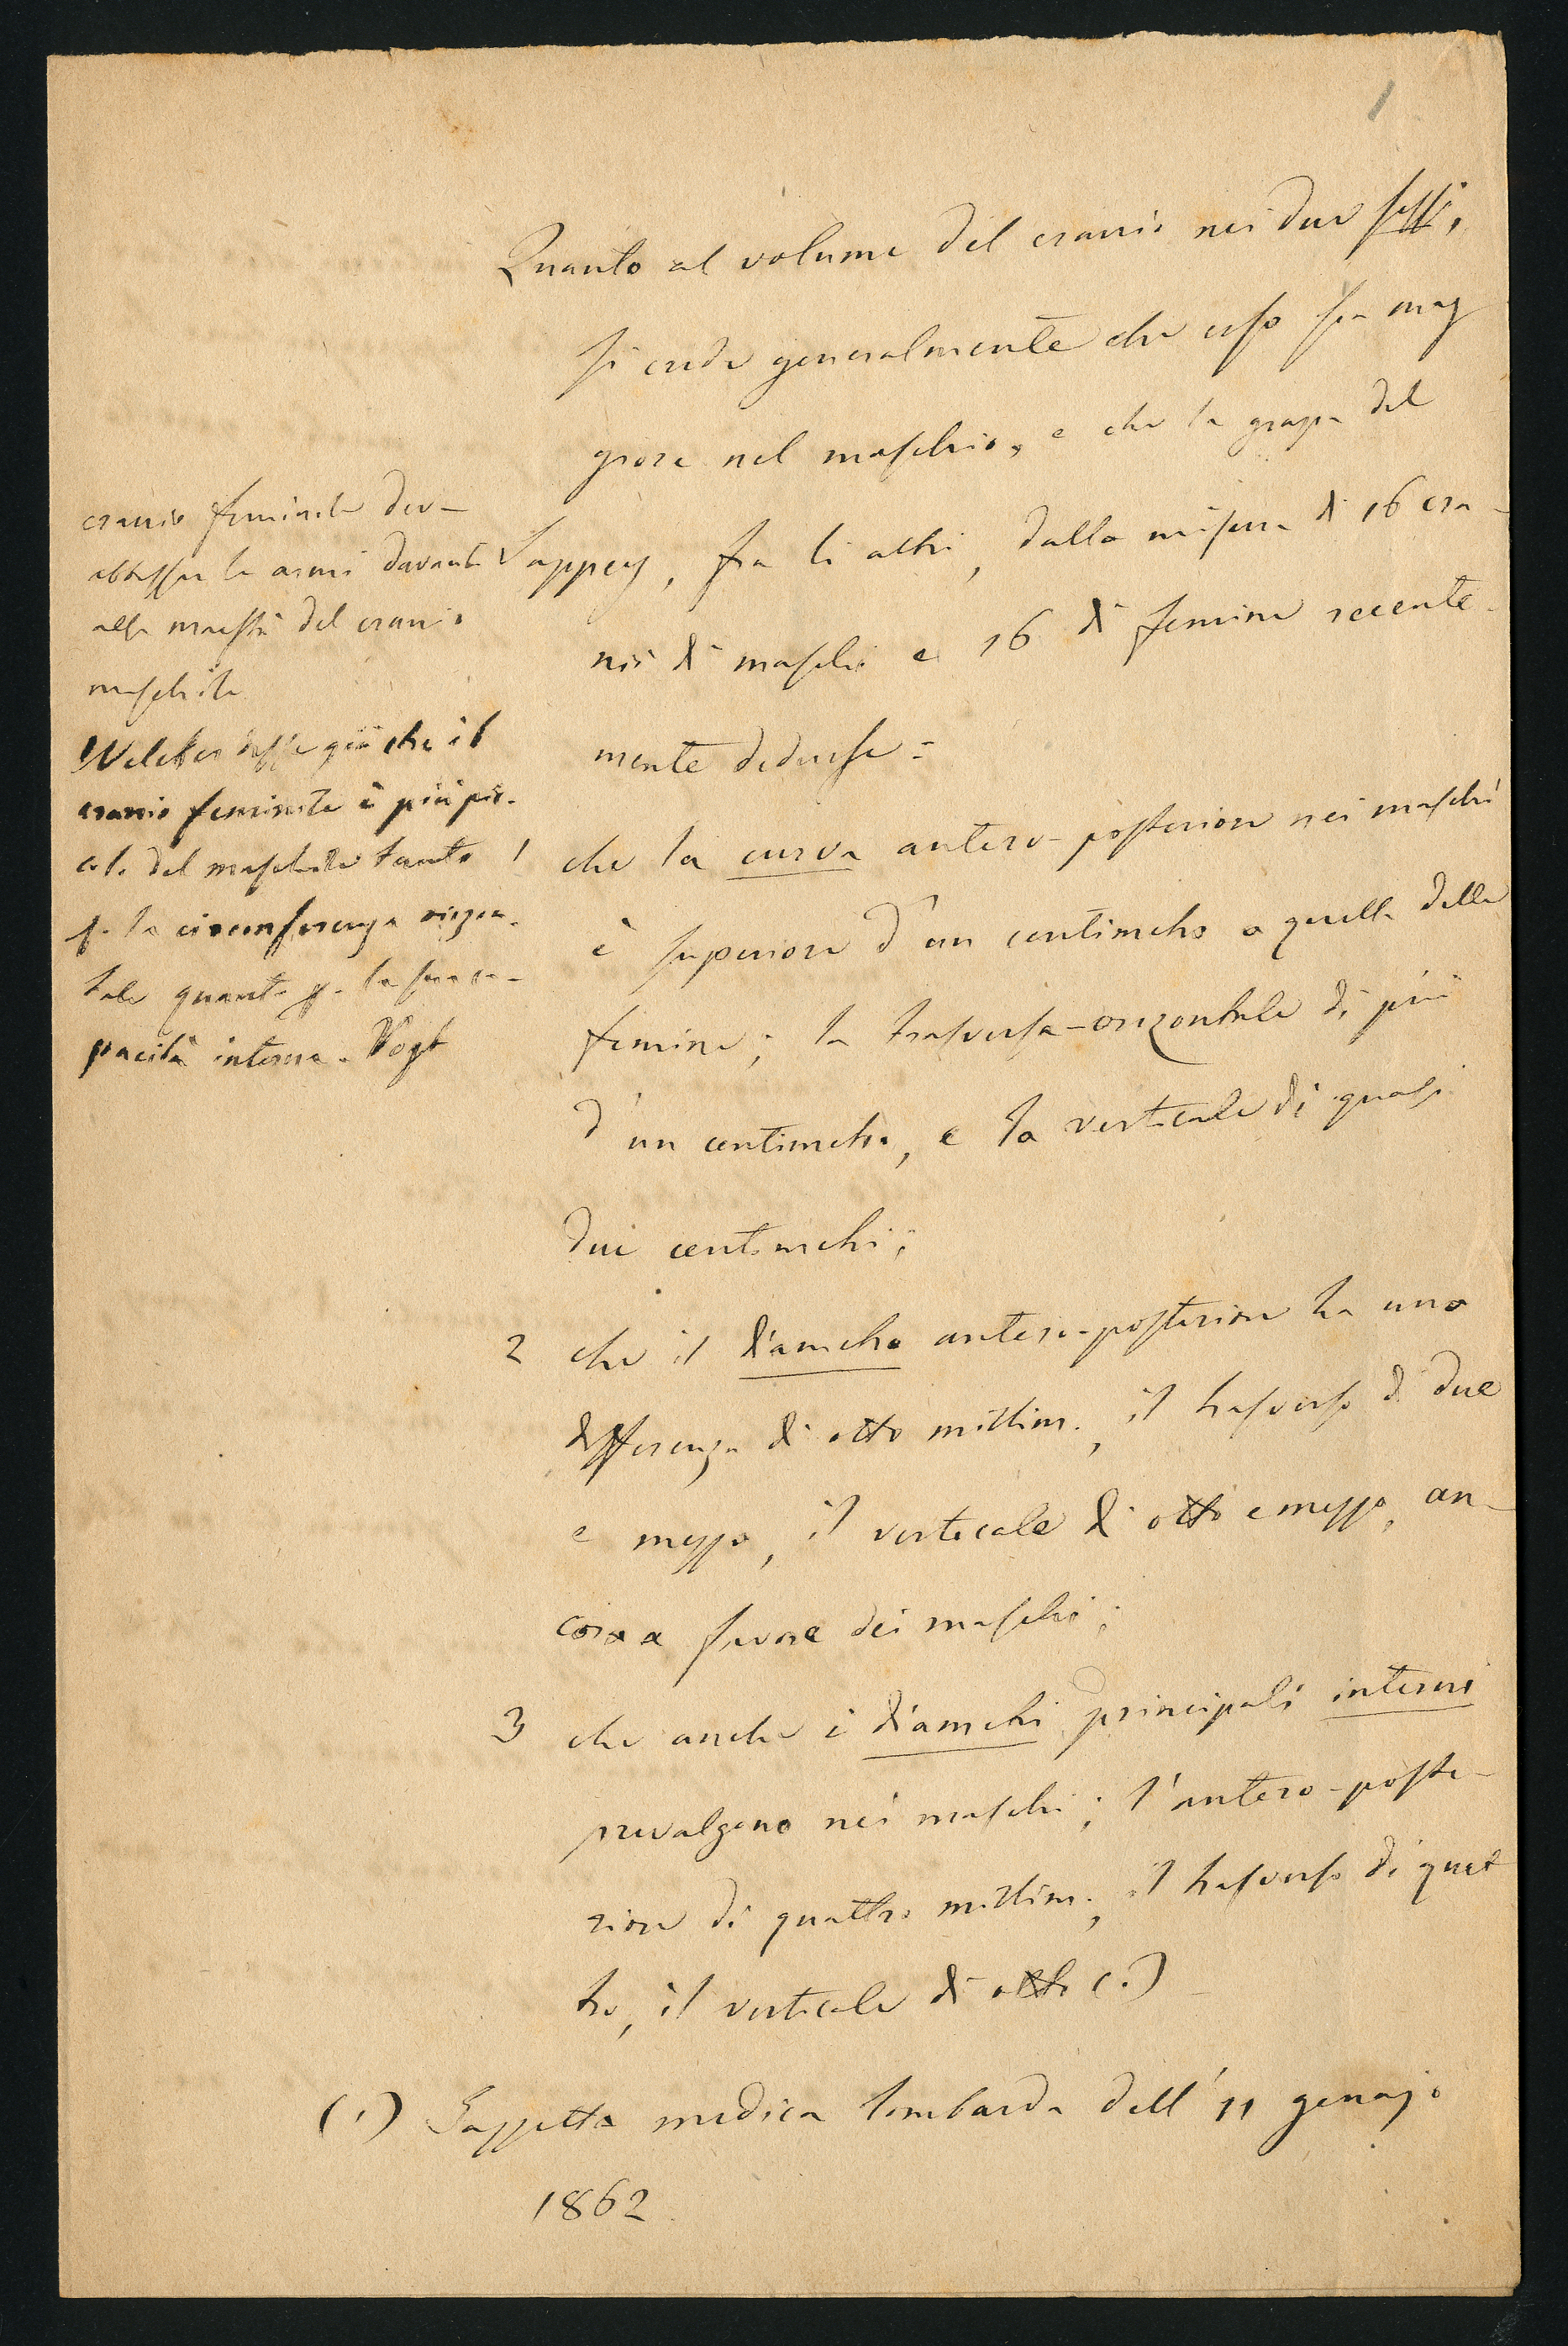 1
Quanto al volume del cranio nei due sessi,
si crede generalmente che esso sia mag
giore nel maschio, e che la del
Sappey, fra li altri, dalla misura di 16 cra-
nii di maschi e 16 di femine recente-
mente dedusse:
1 che la curva antero-posteriore nei maschi
è superiore d'un centimetro a quella delle
femine; la trasversa-orizontale di più
d'un centimetro, e la verticale di quasi
due centimetri;
2 che il diametro antero-posteriore ha una
differenza di otto millim., il trasverso di due
e mezzo, il verticale di otto e mezzo, an-
cora a favore dei maschi;
3 che anche i diametri principali interni
prevalgono nei maschi; l'antero-poste-
riore di quattro millim., il trasverso di quat
tro, il verticale di otto (1)
(1) Gazzetta medica lombarda dell'11 genajo
1862.
cranio feminile deve
abbassar le armi davanti
alla maestà del cranio
maschile
Welcker disse già che il
cranio feminile è più pic-
colo del maschile tanto
p. la circonferenza orizon-
tale quanto p. la sua ca-
pacità interna. Vogt